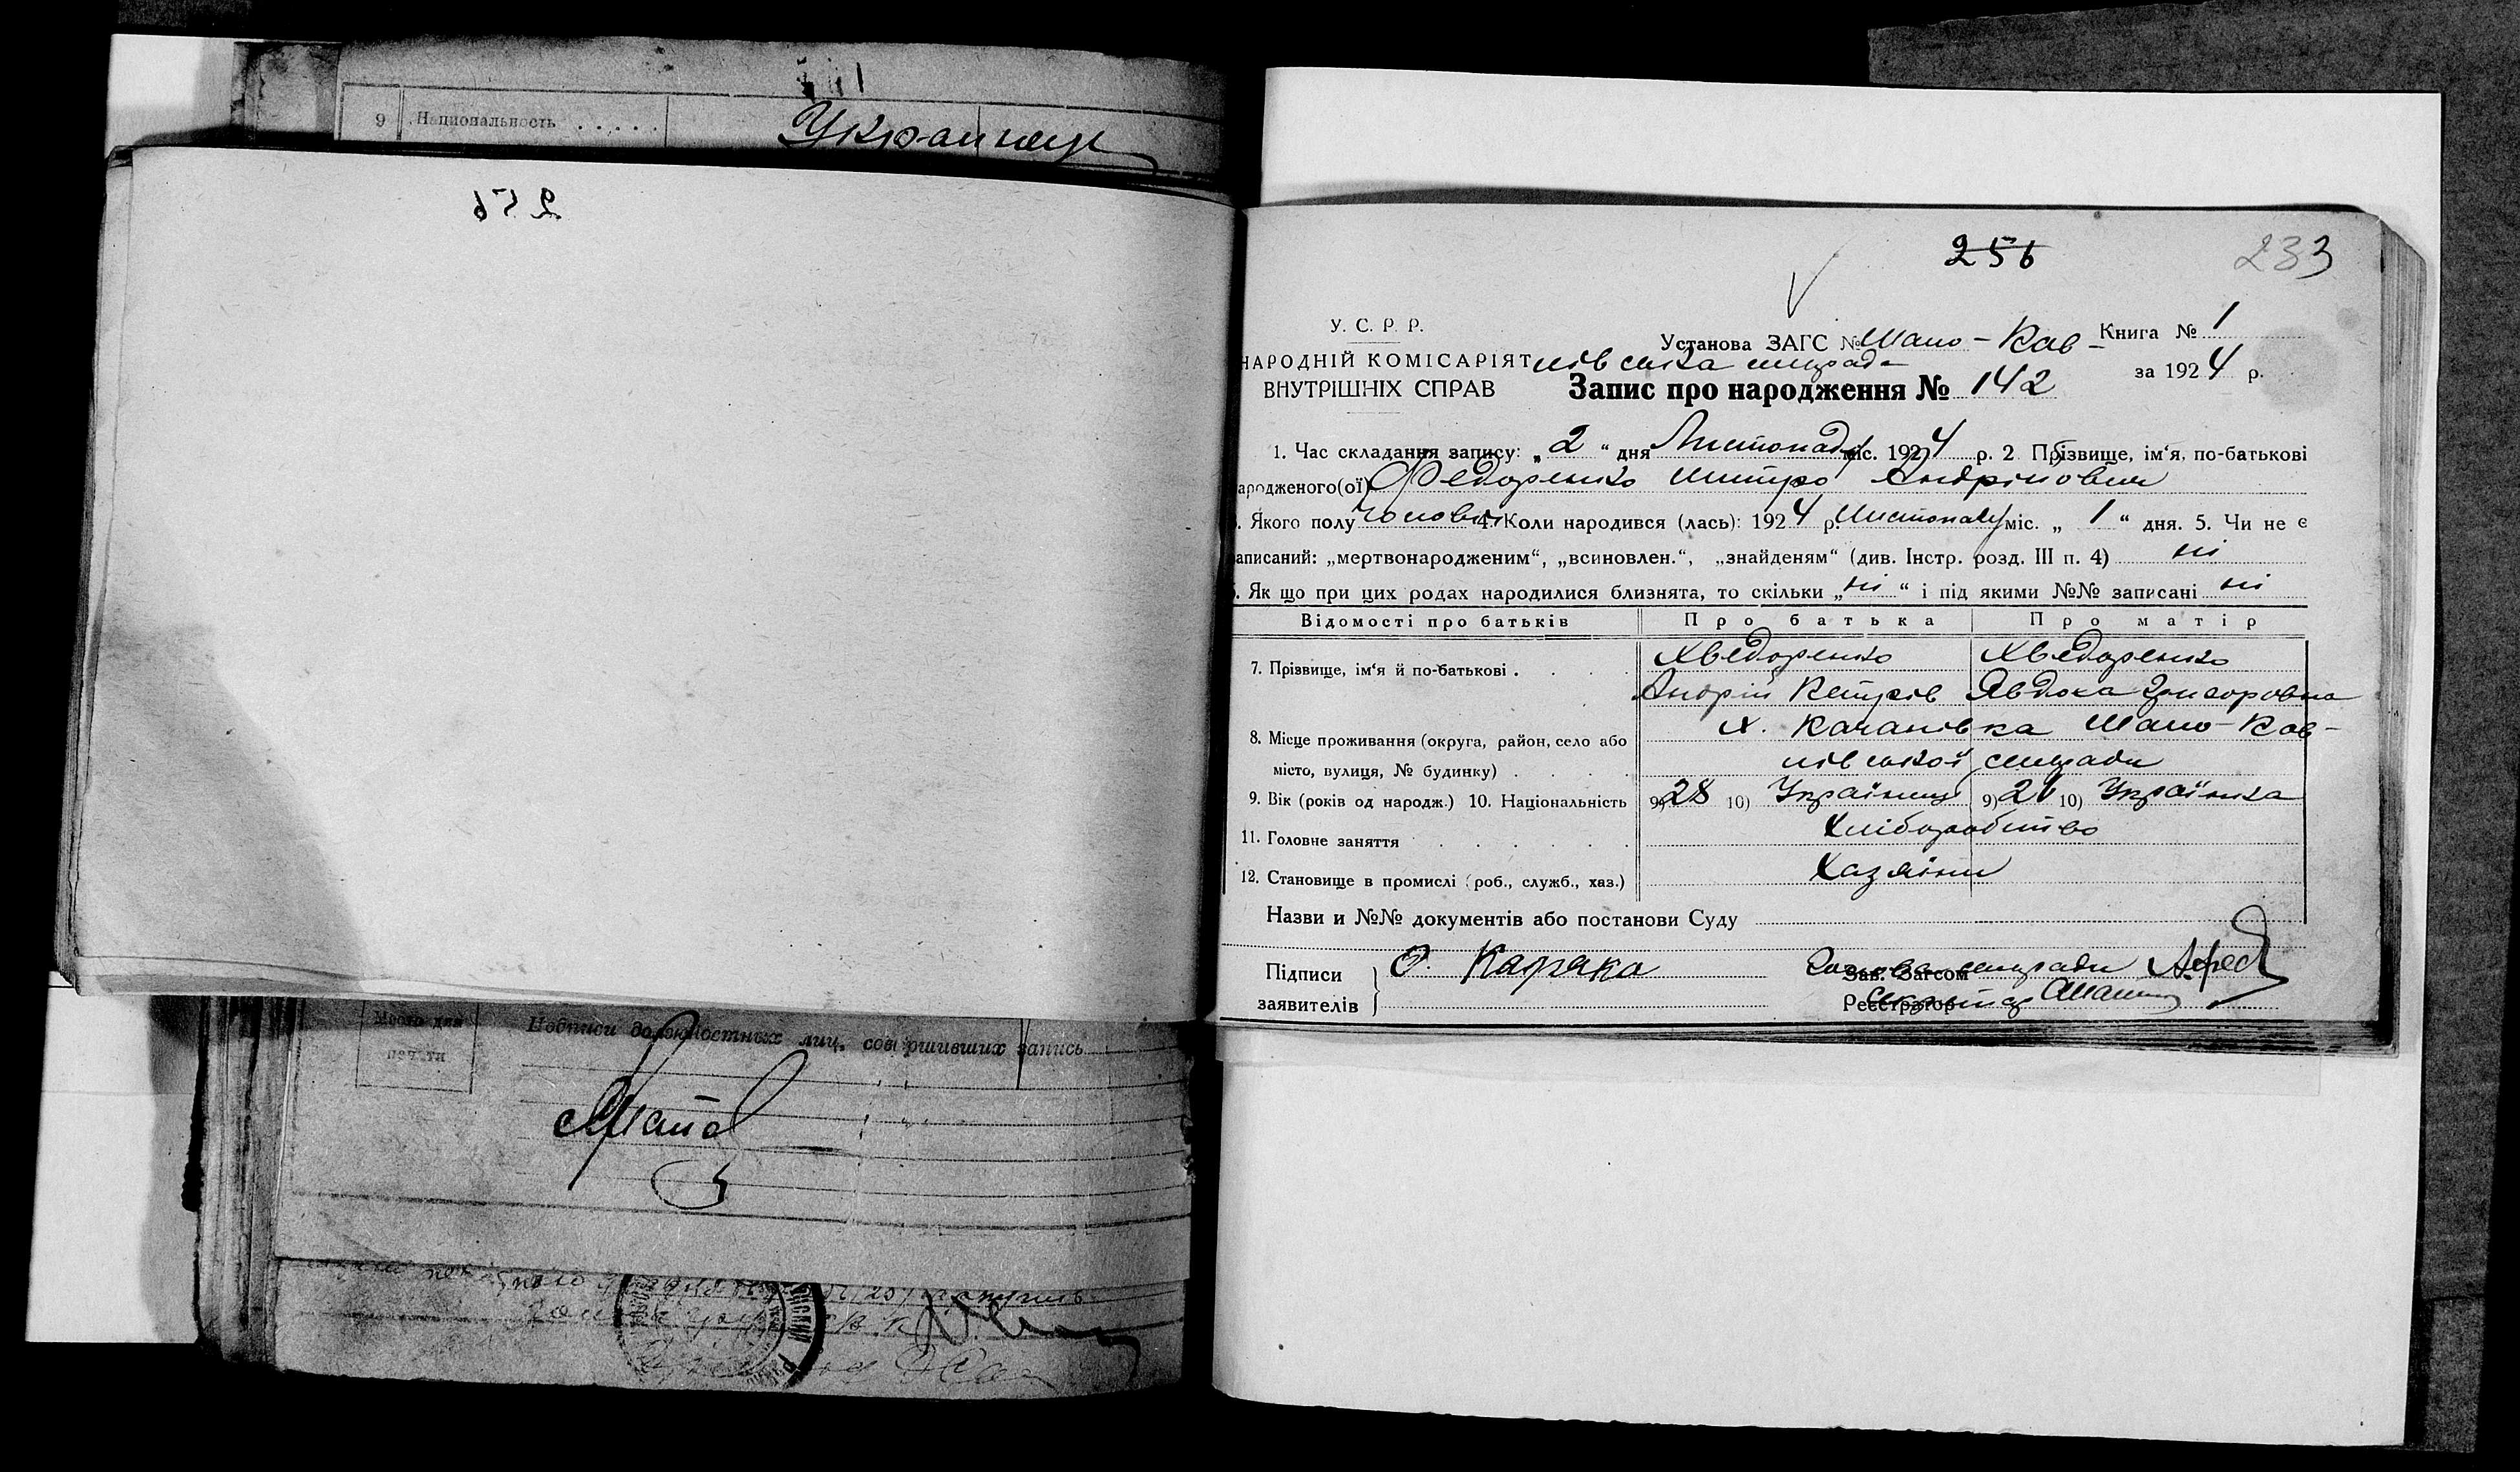 9 Национальность . . . . .
Украинец
256
256 233
У. С. Р. Р.
Установа ЗАГС № Мало-Кав- Книга № 1
НАРОДНІЙ КОМІСАРІЯТ лівська сільрада
за 1924 р.
ВНУТРІШНІХ СПРАВ
Запис про народження № 142
1. Час складання запису: „ 2 “ дня Листопаду міс. 1924 р. 2 Прізвище, ім‘я, по-батькові
ародженого(ої) Федоренко Митро Андрійович
. Якого полу чоловіч 4. Коли народився (лась): 1924 р. Листопаду міс. „ 1 “ дня. 5. Чи не є
записаний: „мертвонародженим“, „всиновлен.“, „знайденям“ (див. Інстр. розд. III п. 4) ні
6. Як що при цих родах народилися близнята, то скільки „ ні “ і під якими №№ записані ні
Відомості про батьків Про батька Про матір
7. Прізвище, ім‘я й по-батькові . . . . Хведоренко Хведоренко
Андрій Петрів Явдоха Григоровна
8. Місце проживання (округа, район, село або х. Качанівка Мало-Кав-
місто, вулиця, № будинку) . . . . лівської сільради
9. Вік (років од народж.) 10. Національність 9) 28 10) Українець 9) 21 10) Українка
11. Головне заняття . . . . . . Хліборобство
12. Становище в промислі (роб., служб., хаз.) Хазяїни
Назви и №№ документів або постанови Суду
Підписи заявителів О. Каряка
Зав. Загсом Голова сільради
Реєстратор
Место для печати
Подписи должностных лиц, совершивших запись